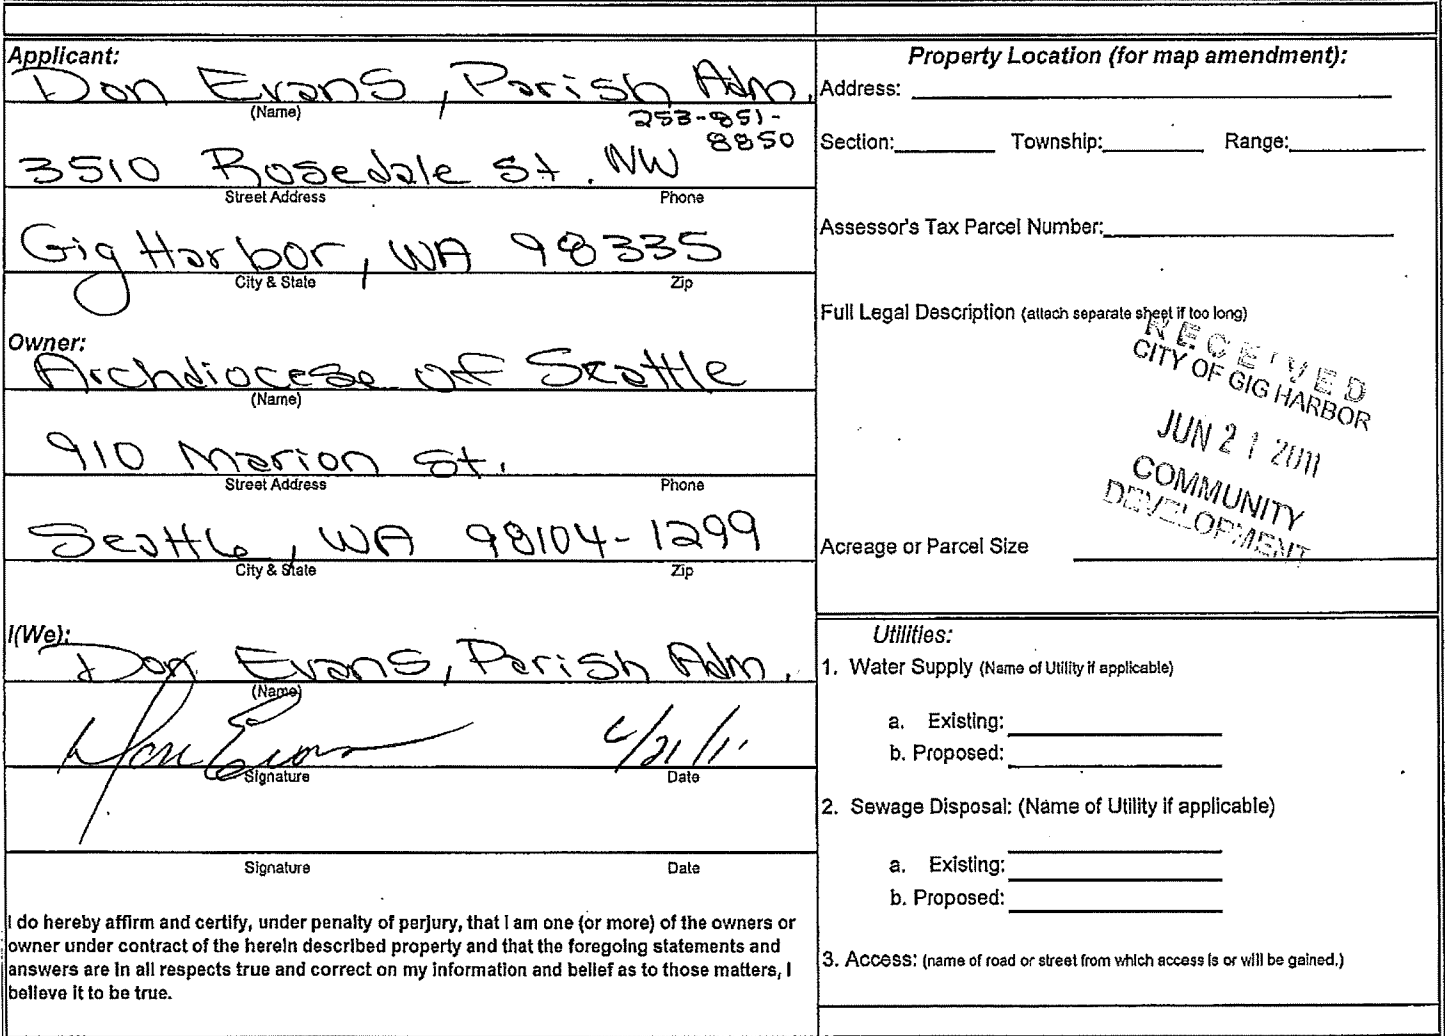 Applicant:
Don Evans, Parish Adm.
(Name)
253-851-
8850
3510 Rosedale St. NW
Street Address Phone
Gig Harbor, WA 98335
City & State Zip
Owner:
Archdiocese of Seattle
(Name)
910 Marion St.
Street Address Phone
Seattle, WA 98104-1299
City & State Zip
I(We):
Don Evans, Parish Adm.
(Name)
Don Evans 6/21/11
Signature Date
Signature Date
I do hereby affirm and certify, under penalty of perjury, that I am one (or more) of the owners or
owner under contract of the herein described property and that the foregoing statements and
answers are in all respects true and correct on my information and belief as to those matters, I
believe it to be true.
Property Location (for map amendment):
Address:
Section: Township: Range:
Assessor's Tax Parcel Number:
Full Legal Description (attach separate sheet if too long)
RECEIVED
CITY OF GIG HARBOR
JUN 21 2011
COMMUNITY
DEVELOPMENT
Acreage or Parcel Size
Utilities:
1. Water Supply (Name of Utility if applicable)
a. Existing:
b. Proposed:
2. Sewage Disposal: (Name of Utility if applicable)
a. Existing:
b. Proposed:
3. Access: (name of road or street from which access is or will be gained.)